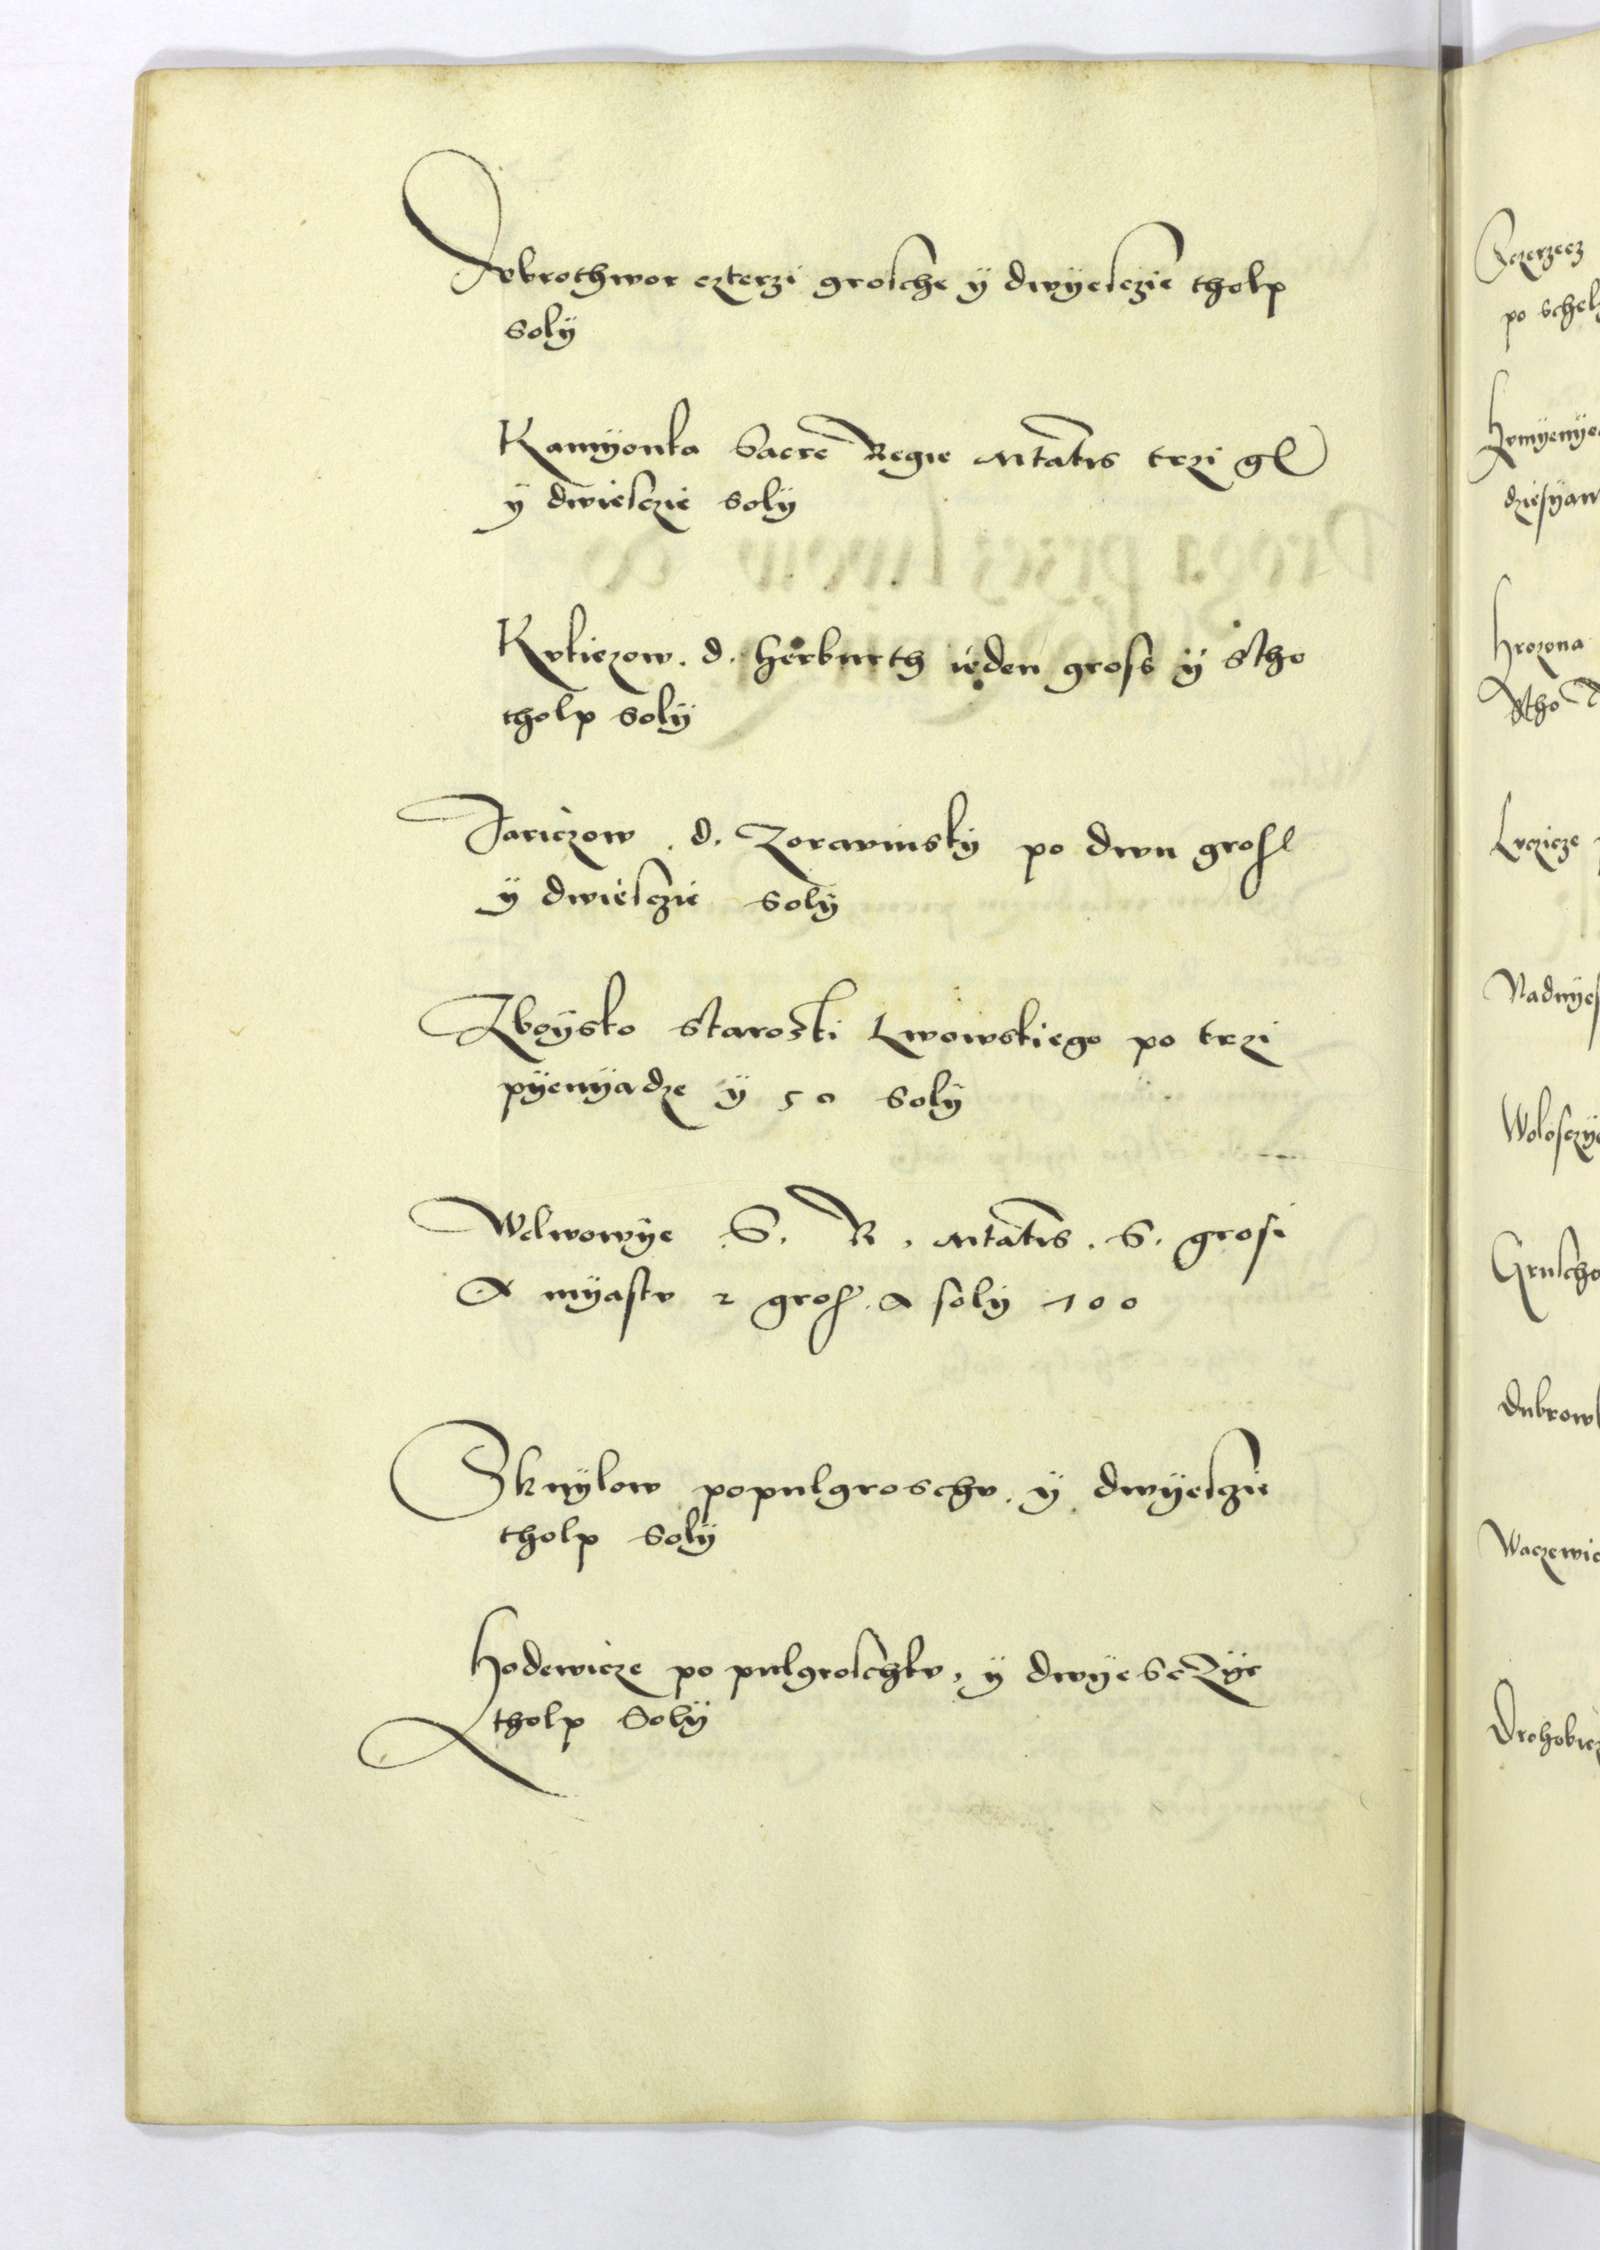 Dvbrothwor czterzi grosche ÿ dwÿesczie tholp
solÿ
Kamÿonka Sacre Regie Mtatis trzi gl
ÿ dwiesczie solÿ
Kvkiezow . d . herburth ieden gross ÿ stho
tholp solÿ
Jariczow . d . Zoravinskÿ po dwu grosz
ÿ dwiesczie solÿ
Zboÿsko starosti Lwowskiego po trzi
pÿenÿadze ÿ 50 solÿ
Welwowÿe S . R . Mtatis . 6 . grosi
A mÿastv 2 gros . A solÿ 100
Sknÿlow populgroschv . ÿ dwÿesczie
tholp solÿ
Hodowicze po pulgroschkv , ÿ dwÿesczÿe
tholp Solÿ
Sczerzecz
po schel
Hvmÿenÿe
dziesÿan
Hrozona
Stho
Lvczicze
Nadwÿes
Woloszcÿ
Gruscho
Dubrow
Waczewic
Drohobicz